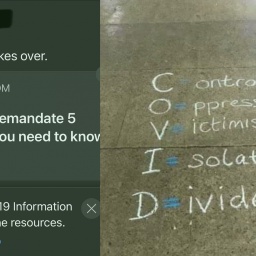 kes over.
OM
emandate 5
ou need to know
19 Information
e resources.
C = ontro
O = ppress
V = ictimis
I = solat
D = ivide